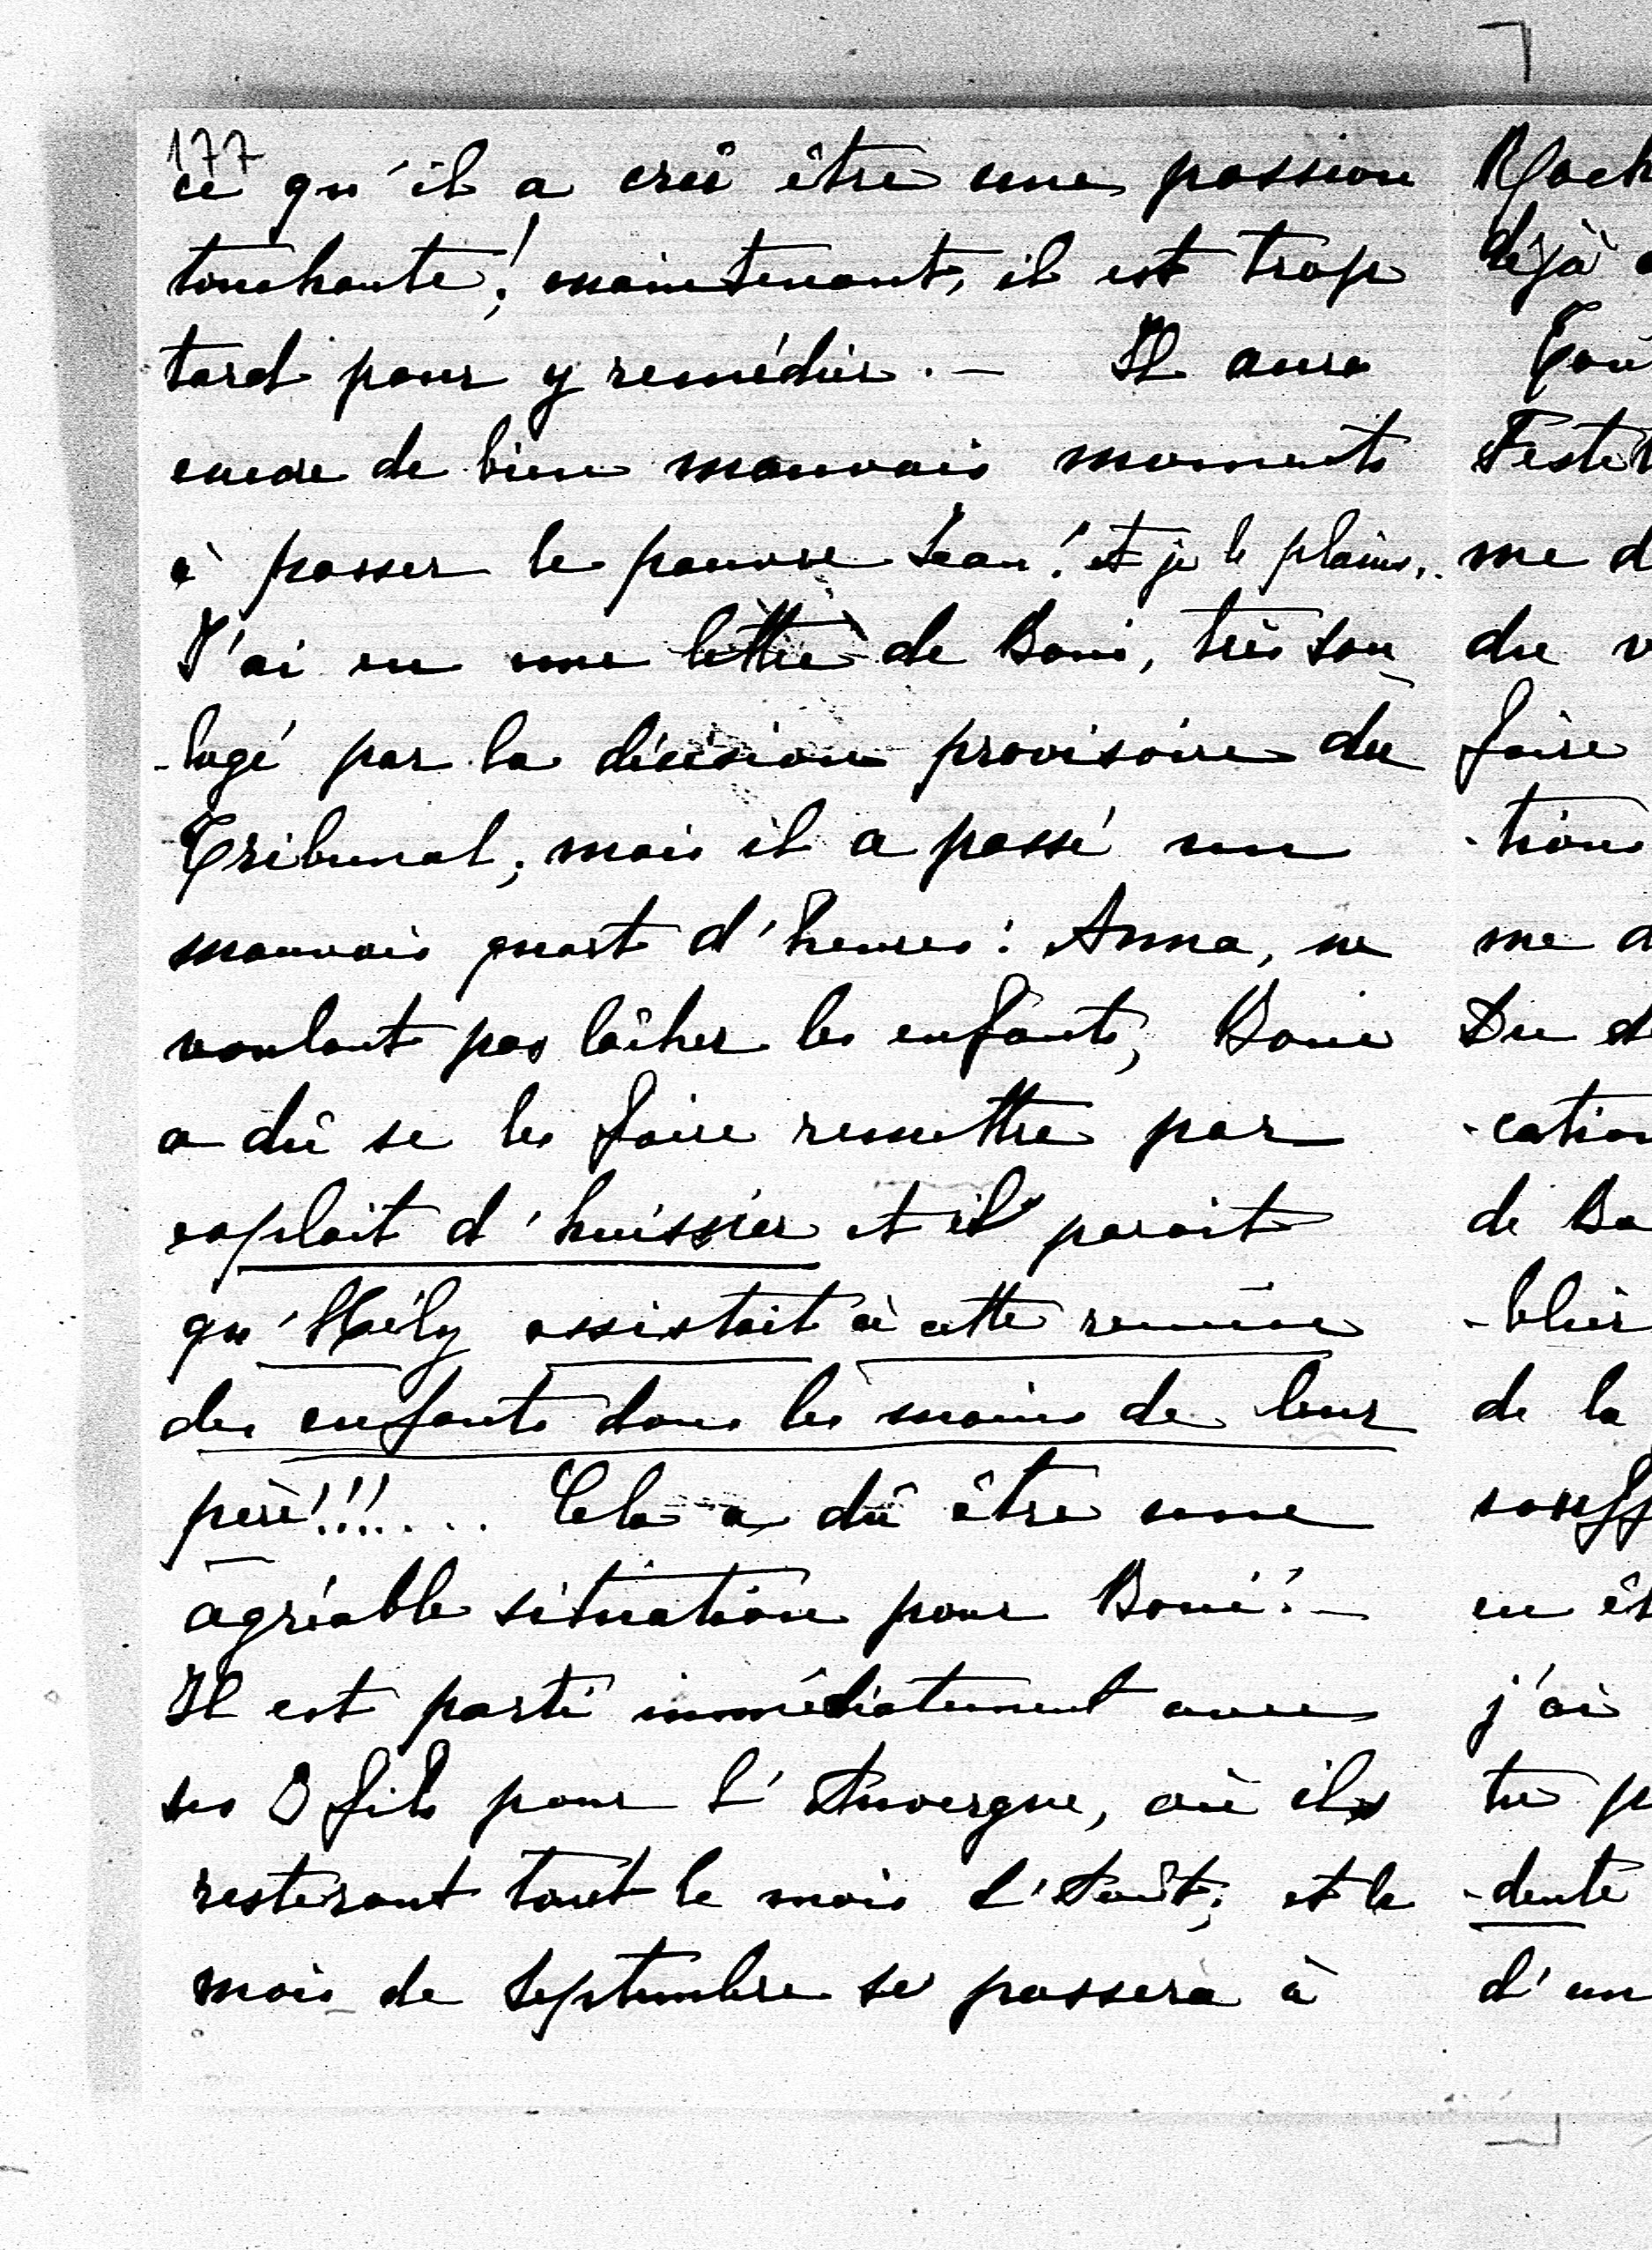 177
ce qu'il a crû être une passion
touchante! maintenant, il est trop
tard pour y remédier. — Il aura
encore de bien mauvais moments
à passer le pauvre Jean! et je le plains.
J'ai eu une lettre de Boni, très sou
-lagé par la décision provisoire du
Tribunal; mais il a passé un
mauvais quart d'heures: Anna, ne
voulant pas lâcher les enfants, Boni
a dû se les faire remettre par
exploit d'huissier et il parait
qu'Hély assistait à cette remise
des enfants dans les mains de leur
père!!!.... Cela a dû être une
agréable situation pour Boni! —
Il est parti immédiatement avec
ses 3 fils pour l'Auvergne, où ils
resteront tout le mois d'Août; et le
mois de Septembre se passera à
déjà
me d
du v
faire
-tions
me d
-cation
de Bo
-blier
de la
souff
en êt
j'ai
tu p
-dente
d'un